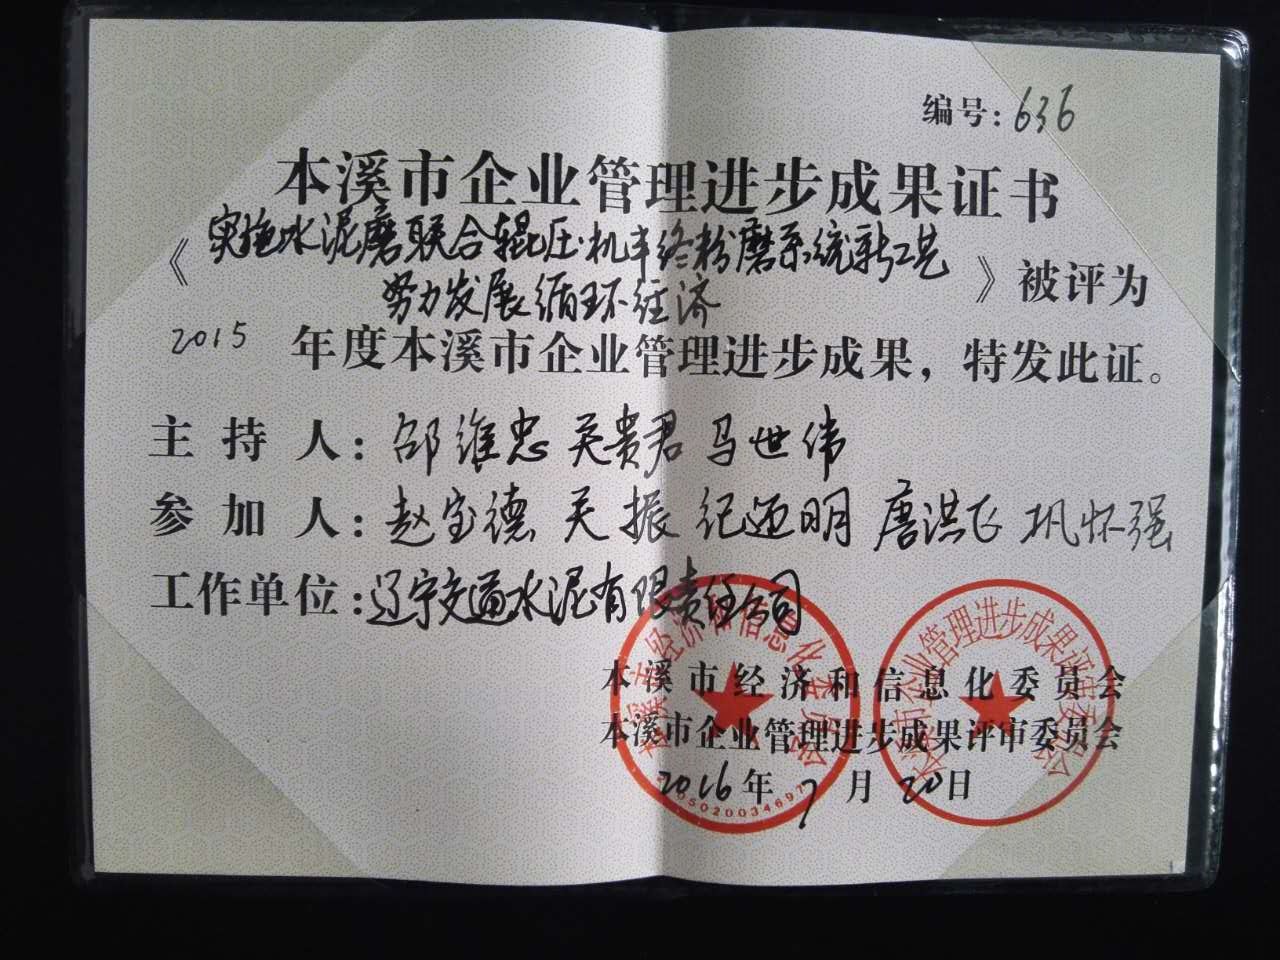 编号:636
本溪市企业管理进步成果证书
《实施水泥磨联合辊压机半终粉磨系统新工艺
努力发展循环经济》被评为
2015年度本溪市企业管理进步成果，特发此证。
主持人:邵维忠 吴贵君 马世伟
参加人:赵宝德 吴振 纪迎明 唐洪飞 巩怀强
工作单位:辽宁交通水泥有限责任公司
本溪市经济和信息化委员会
本溪市企业管理进步成果评审委员会
2016年7月20日
本溪市经济和信息化委员会
本溪市企业管理进步成果评审委员会